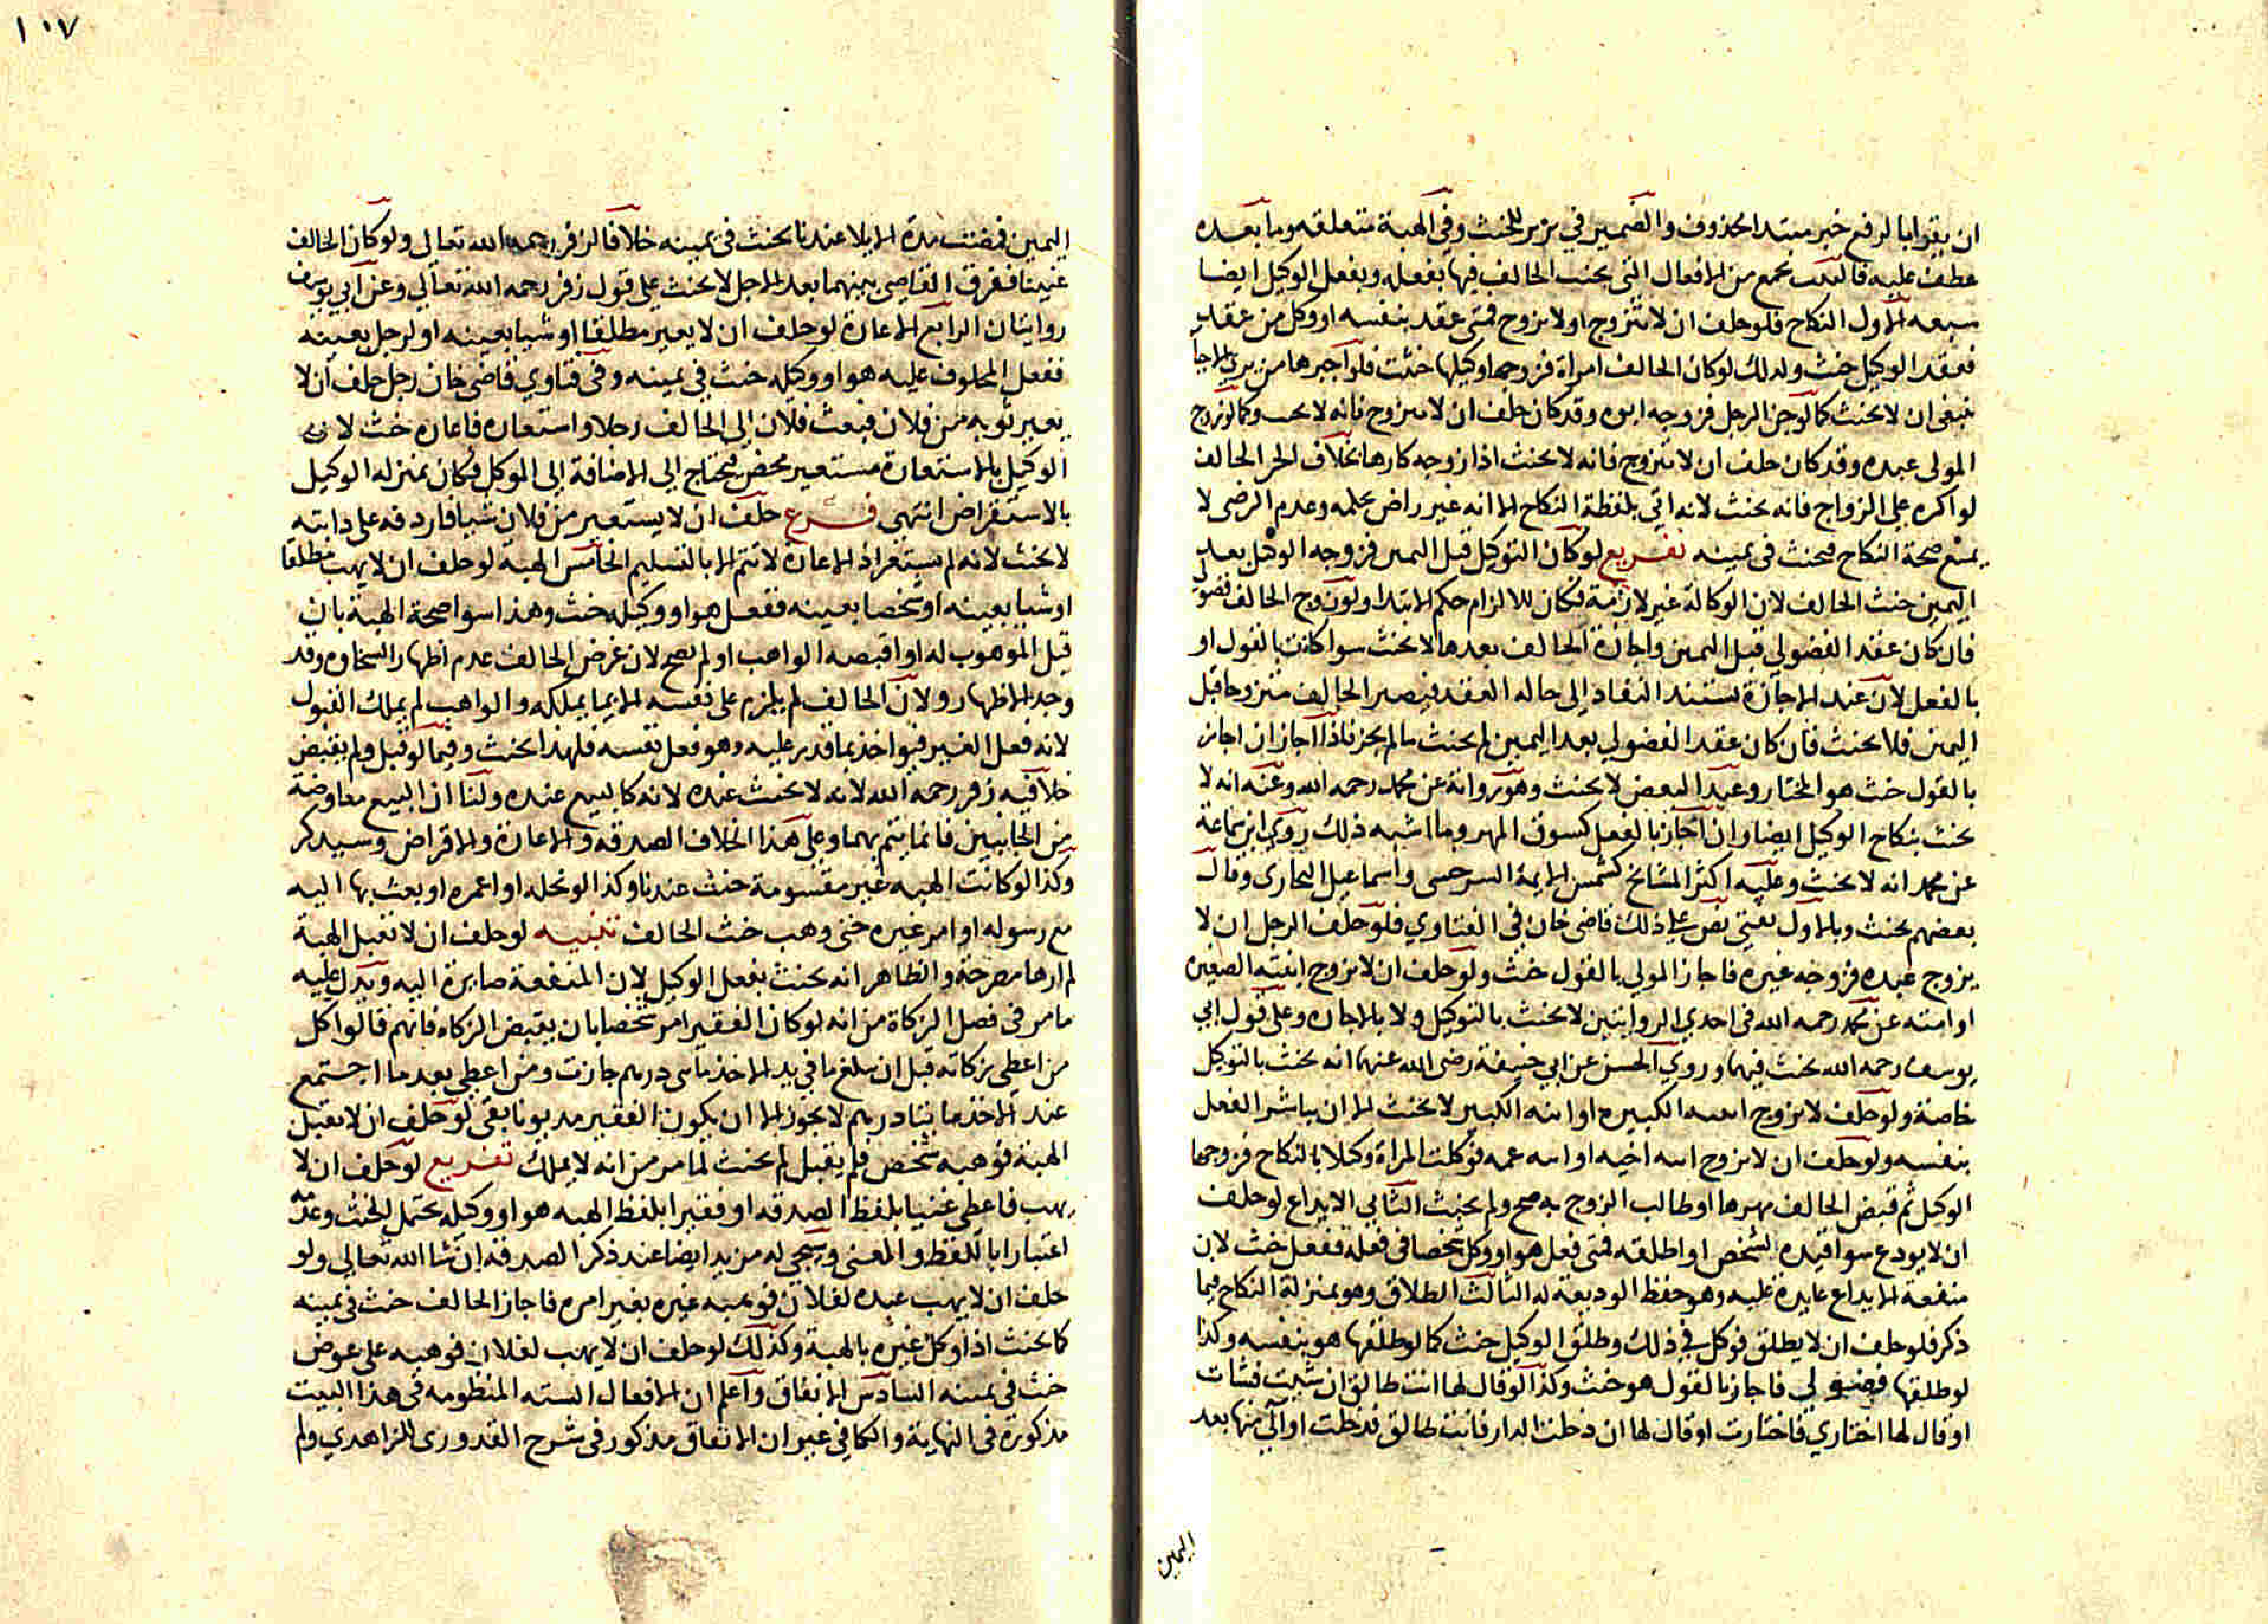 ان يقرا بالرفع خبر مبتدا محذوف والضمير في يزير للحنث وفي الهبة متعلقه وما بعده
عطف عليه فالبيت يجمع من الافعال التي يحنث الحالف فيها بفعله وبفعل الوكيل ايضا
سبعه الاول النكاح فلو حلف ان لا يتزوج او لا يزوج فمتى عقد بنفسه او وكل من عقد
فعقد الوكيل حنث ولذلك لو كان الحالف امراة فزوجها وكيلها حنثت فلو اجبرها من يري الاجبا
ينبغي ان لا يحنث كما لو جن الرجل فزوجه ابوه وقد كان حلف ان لا يتزوج فانه لا يحنث وكما لو زوج
المولى عبده وقد كان حلف ان لا يتزوج فانه لا يحنث اذا زوجه كارها بخلاف الحر الحالف
لو اكره على الزواج فانه يحنث لانه اتي بلفظة النكاح الا انه غير راض بحكمه وعدم الرضى لا
يمنع صحة النكاح فيحنث في يمينه تفريع لو كان التوكيل قبل اليمين فزوجه الوكيل بعد
اليمين حنث الحالف لان الوكالة غير لازمة فكان للالزام حكم الابتدا ولو زوج الحالف فضولي
فان كان عقد الفضولي قبل اليمين واجازة الحالف بعدها لا يحنث سوا كانت بالقول او
بالفعل لان عند الاجازة يستند النفاد الى حاله العقد فيصير الحالف متزوجا قبل
اليمين فلا يحنث فان كان عقد الفضولي بعد اليمين لم يحنث ما لم يجز فاذا اجاز ان اجاز
بالقول حنث هو المختار وعند البعض لا يحنث وهو رواية عن محمد رحمه الله وعنه انه لا
يحنث بنكاح الوكيل ايضا وان اجاز بالفعل كسوق المهر وما اشبه ذلك روي ابن سماعة
عن محمد انه لا يحنث وعليه اكثر المشايخ كشمس الايمة السرخسي واسماعيل البخاري وقال
بعضهم يحنث وبالاول يفتي نص علي ذلك قاضي خان في الفتاوي فلو حلف الرجل ان لا
يزوج عبده فزوجه غيره فاجاز المولي بالقول حنث ولو حلف ان لا يزوج ابنته الصغيره
او امته عن محمد رحمه الله في احدي الروايتين لا يحنث بالتوكيل ولا بالاجازه وعلى قول ابي
يوسف رحمه الله يحنث فيهما وروي الحسن عن ابي حنيفة رضى الله عنهما انه يحنث بالتوكيل
خاصة ولو حلف لا يزوج ابنته الكبيره او ابنه الكبير لا يحنث الا ان يباشر الفعل
بنفسه ولو حلف ان لا يزوج ابنه اخيه او ابنه عمه فوكلت المراة وكيلا بالنكاح فزوجها
الوكيل ثم قبض الحالف مهرها او طالب الزوج به صح ولم يحنث الثاني الايداع لو حلف
ان لا يودع سوا قيده لشخص او اطلقه فمتى فعل هو او وكل شخصا في فعله ففعل حنث لان
منفعة الايداع عايدة عليه وهو حفظ الوديعة له الثالث الطلاق وهو بمنزلة النكاح فيما
ذكر فلو حلف ان لا يطلق فوكل في ذلك وطلق الوكيل حنث كما لو طلقها هو بنفسه وكذا
لو طلقها فضولي فاجاز بالقول هو حنث وكذا لو قال لها انت طالق ان شيت فشات
او قال لها اختاري فاختارت او قال لها ان دخلت الدار فانت طالق فدخلت او آلي منها بعد
اليمين
١٠٧
اليمين فمضت مدة الايلا عندنا يحنث في يمينه خلافا لزفر رحمه الله تعالي ولو كان الحالف
عنينا ففرق القاضي بينهما بعد الاجل لا يحنث على قول زفر رحمه الله تعالي وعن ابي يوسف
روايتان الرابع الاعارة لو حلف ان لا يعير مطلقا او شيا بعينه او لرجل بعينه
ففعل المحلوف عليه هو او وكيله حنث في يمينه وفي فتاوي قاضي خان رجل حلف ان لا
يعير ثوبه من فلان فبعث فلان الى الحالف رجلا واستعاره فاعاره حنث لان
الوكيل بالاستعارة مستعير محض فيحتاج الي الاضافة الى الموكل فكان بمنزله الوكيل
بالاستقراض انتهى فرع حلف ان لا يستعير من فلان شيا فاردفه على دابته
لا يحنث لانه لم يستعر اذ الاعارة لا تتم الا بالتسليم الخامس الهبة لو حلف ان لا يهب مطلقا
او شيا بعينه او شخصا بعينه ففعل هو او وكيله حنث وهذا سوا صحة الهبة بان
قبل الموهوب له او اقبضه الواهب او لم تصح لان غرض الحالف عدم اظهار السخاوه وقد
وجد الاظهار ولان الحالف لم يلزم على نفسه الا بما يملكه والواهب لم يملك القبول
لانه فعل الغير فيواخذ بما قدر عليه وهو فعل نفسه فلهذا يحنث وفيما لو قبل ولم يقبض
خلافية زفر رحمه الله لانه لا يحنث عنده لانه كالبيع عنده ولنا ان البيع معاوضة
من الجانبين فانما يتم بهما وعلى هذا الخلاف الصدقه والاعارة والاقراض وسيذكر
وكذا لو كانت الهبه غير مقسومة حنث عندنا وكذا لو نحله او اعمره او بعث بها اليه
مع رسوله او امر غيره حتى وهب حنث الحالف تنبيه لو حلف ان لا تقبل الهبة
لم ارها مصرحة والظاهر انه يحنث بفعل الوكيل لان المنفعة صايرة اليه ويدل عليه
ما مر في فصل الزكاة من انه لو كان الفقير امر شخصا بان يقبض الزكاه فانهم قالوا كل
من اعطى زكاته قبل ان يبلغ ما في يد الاخذ مائتي درهم جازت ومن اعطي بعد ما اجتمع
عند الاخذ مايتا درهم لا يجوز الا ان يكون الفقير مديونا بقى لو حلف ان لا يقبل
الهبة فوهبه شخص فلم يقبل لم يحنث لما مر من انه لا يملك تفريع لو حلف ان لا
يهب فاعطى غنيا بلفظ الصدقه او فقيرا بلفظ الهبه هو او وكيله يحتمل الحنث وعدمه
اعتبارا باللفظ والمعنى وسيجي له مزيد ايضا عند ذكر الصدقة ان شا الله تعالى ولو
حلف ان لا يهب عبده لفلان فوهبه غيره بغير امره فاجاز الحالف حنث في يمينه
كما يحنث اذا وكل غيره بالهبة وكذلك لو حلف ان لا يهب لفلان فوهبه على عوض
حنث في يمينه السادس الانفاق واعلم ان الافعال السته المنظومه في هذا البيت
مذكورة في النهاية والكافي غير ان الانفاق مذكور في شرح القدوري للزاهدي ولم